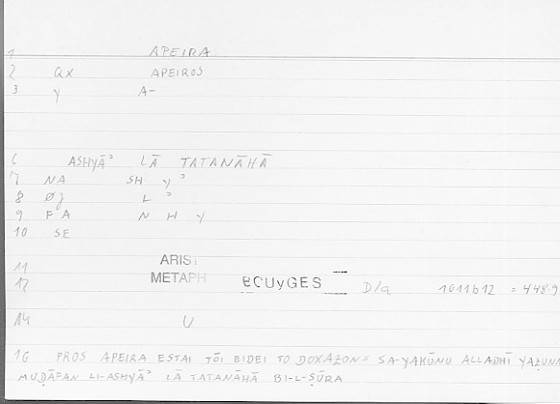 1 APEIRA
2 QX APEIROS
3 Y A-
6 ASHYĀʾ LĀ TATANĀHĀ
7 NA SH Y ʾ
8 ØZ L ʾ
9 FA N H Y
10 SE
11 ARIST
12 METAPH D/a 1011b12 = 448.9
14 U
16 PROS APEIRA ESTAI TŌI EIDEI TO DOXAZON = SA-YAKŪNU ALLADHĪ YAẒUNN
MUḌĀFAN LI-ASHYĀʾ LĀ TATANĀHĀ BI-L-ṢŪRA